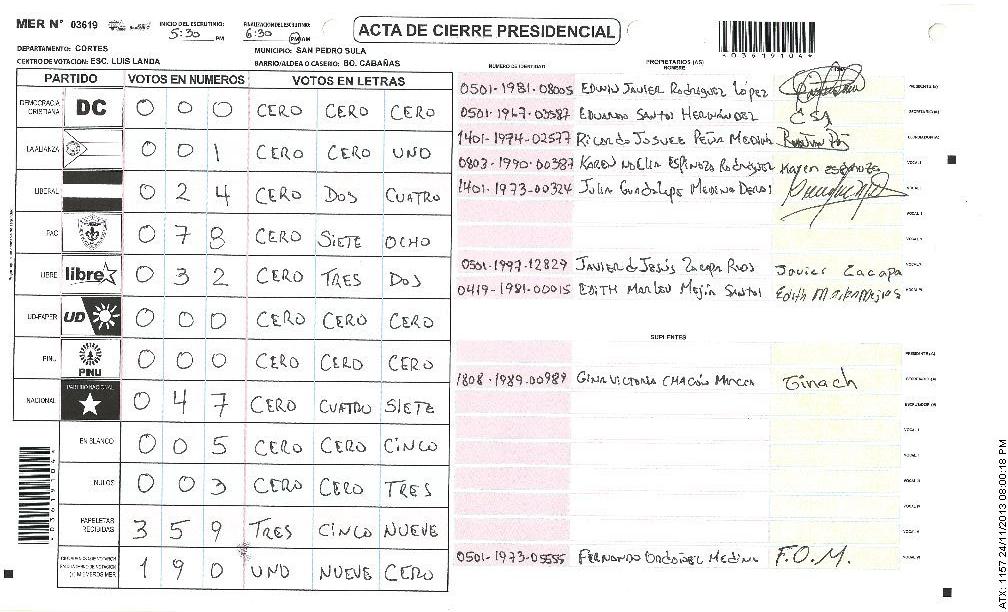 MER N° 03619
INICIO DEL ESCRUTINIO:
5:30 PM
FINALIZACION DEL ESCRUTINIO:
6:30 PM AM
ACTA DE CIERRE PRESIDENCIAL
*03619104*
DEPARTAMENTO: CORTES
MUNICIPIO: SAN PEDRO SULA
CENTRO DE VOTACION: ESC. LUIS LANDA
BARRIO/ALDEA O CASERIO: BO. CABAÑAS
PARTIDO VOTOS EN NUMEROS VOTOS EN LETRAS
DEMOCRACIA CRISTIANA DC 0 0 0 CERO CERO CERO
LA ALIANZA 0 0 1 CERO CERO UNO
LIBERAL 0 2 4 CERO DOS CUATRO
PAC 0 7 8 CERO SIETE OCHO
LIBRE libre 0 3 2 CERO TRES DOS
UD-FAPER UD 0 0 0 CERO CERO CERO
PINU PINU 0 0 0 CERO CERO CERO
NACIONAL PARTIDO NACIONAL 0 4 7 CERO CUATRO SIETE
EN BLANCO 0 0 5 CERO CERO CINCO
NULOS 0 0 3 CERO CERO TRES
PAPELETAS RECIBIDAS 3 5 9 TRES CINCO NUEVE
1 9 0 UNO NUEVE CERO
*03619104*
NUMERO DE IDENTIDAD
PROPIETARIOS (AS)
NOMBRE
0501-1981-08005 EDWIN JAVIER Rodríguez López PRESIDENTE (A)
0501-1967-03587 EDUARDO SANTOS HERNÁNDEZ SECRETARIO (A)
1401-1974-02577 Ricardo JOSUEE PEÑA MEDINA ESCRUTADOR (A)
0803-1990-00387 KAREN NOELIA ESPINOZA Rodríguez Karen Espinoza VOCAL I
1401-1973-00324 JULIA Guadalupe MEDINA VOCAL II
0501-1997-12829 JAVIER d JESÚS Zacapa Ríos Javier Zacapa
0419-1981-00015 EDITH MARLEN Mejía SANTOS
SUPLENTES
PRESIDENTE (A)
1808-1989-00989 GINA VICTORIA CHACÓN Ginach SECRETARIO (A)
ESCRUTADOR (A)
VOCAL I
VOCAL II
0501-1973-05555 FERNANDO Ordoñez Medina F.O.M.
ATX: 1157 24/11/2013 08:00:18 PM